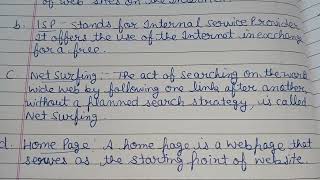 of web sites on the Internet.
b. ISP - Stands for Internal Service Provider
It offers the use of the Internet in exchange
for a free.
C. Net Surfing :- The act of searching on the world
wide web by following one link after another,
without a planned search strategy, is called
Net Surfing.
d. Home Page : A home page is a webpage that
serves as the starting point of website.